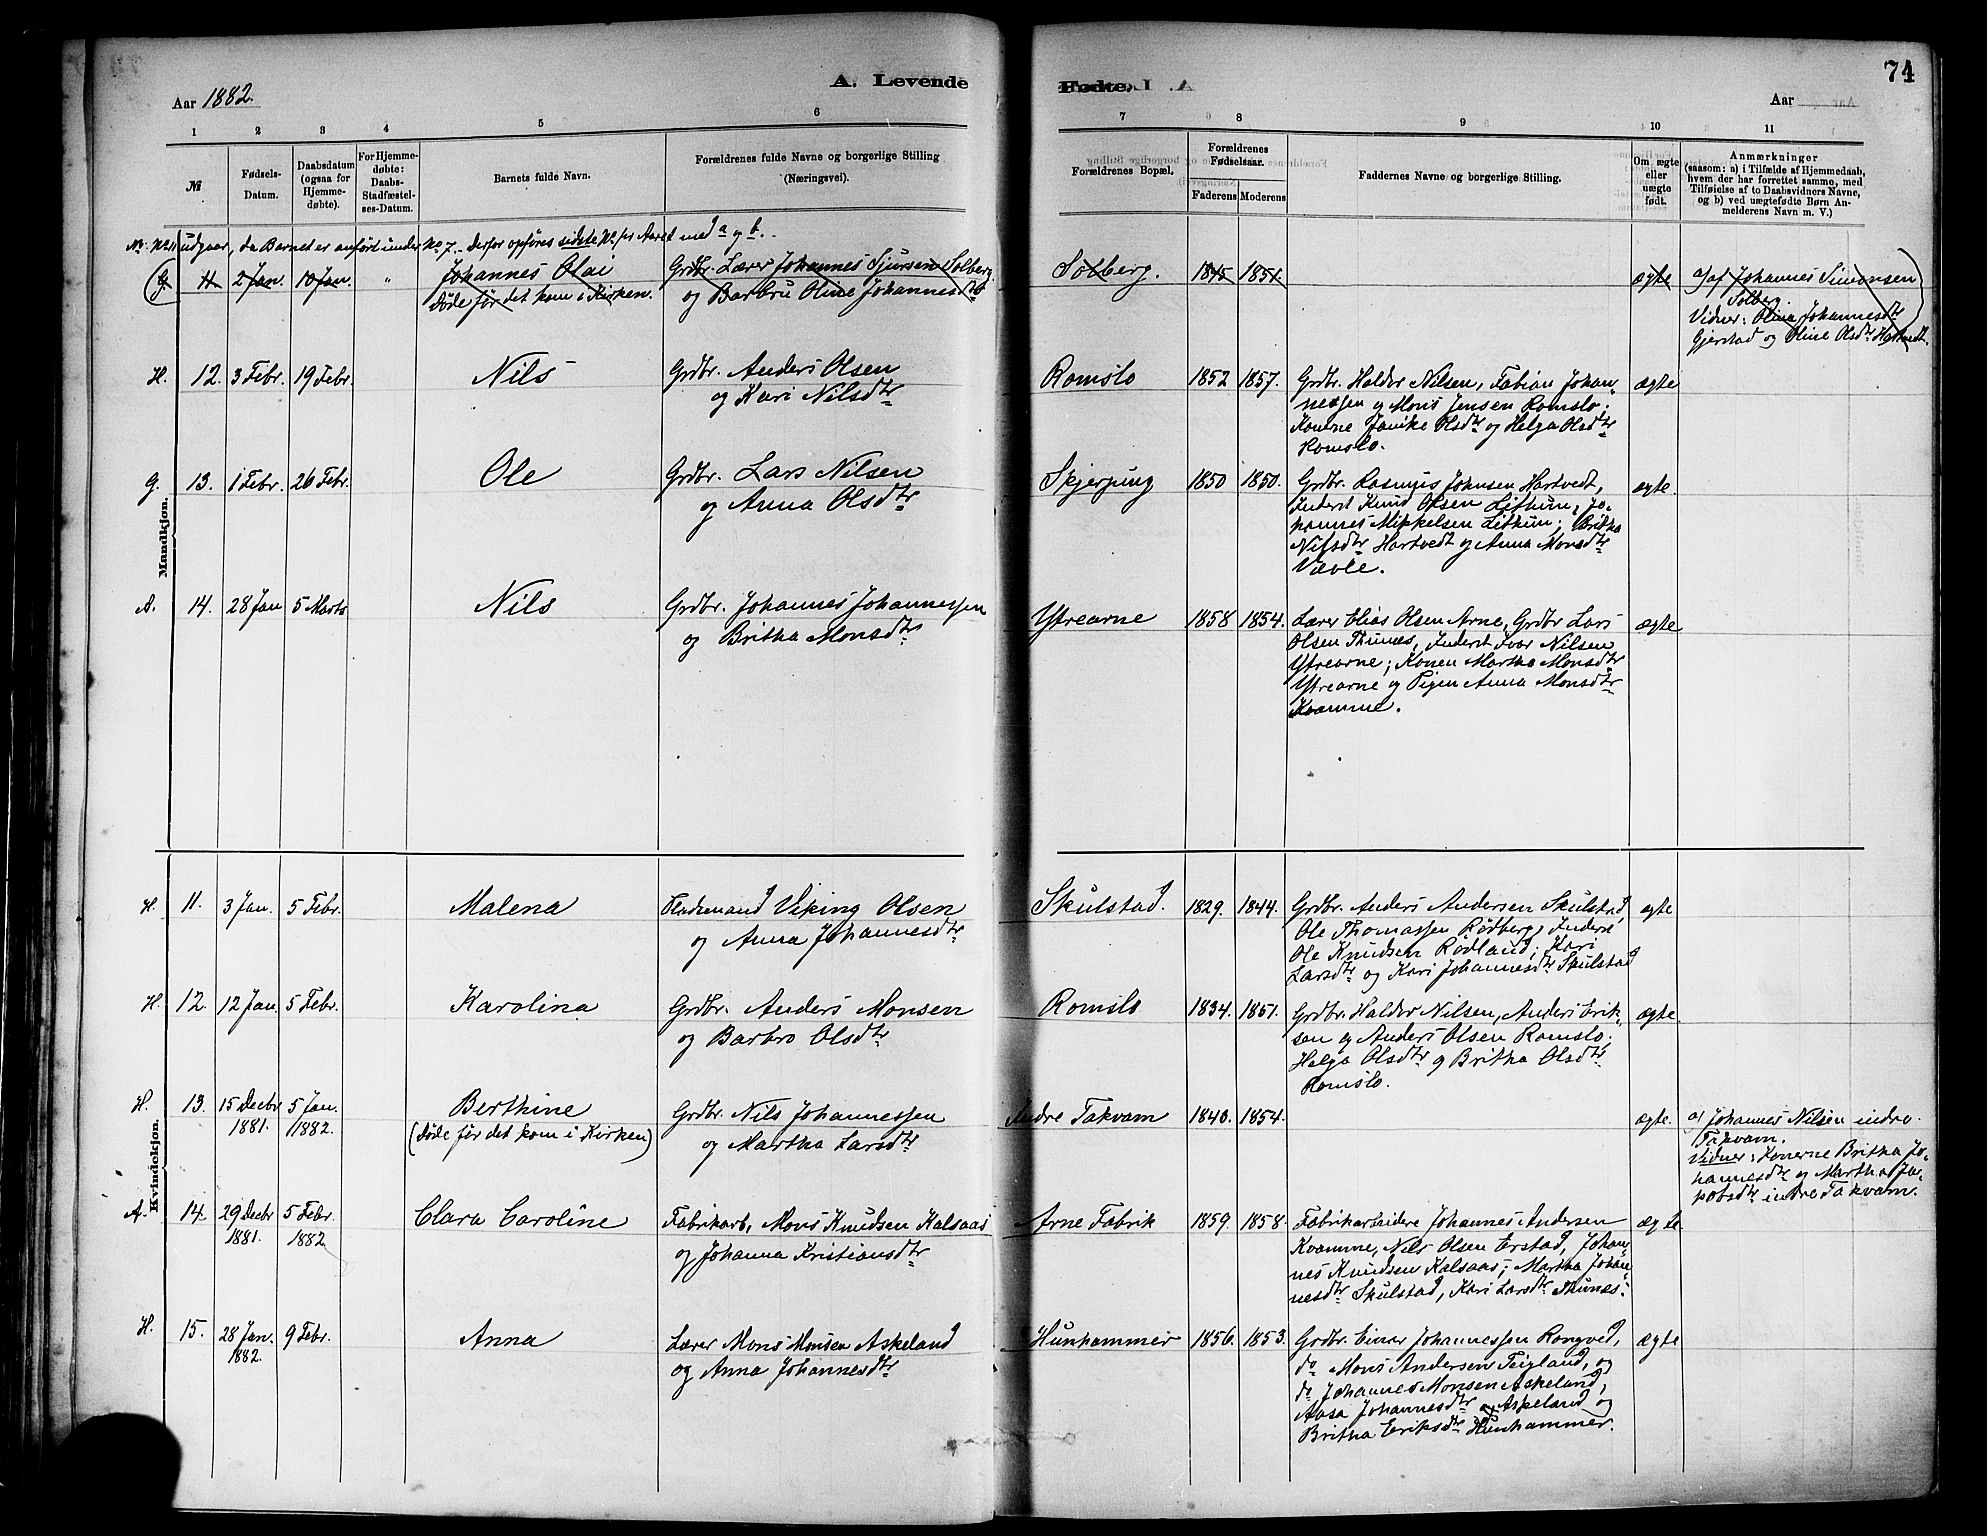 74
A. Levende
Fødte.
Aar 1882.
Aar
1 2 3 4 5 6 7 8 9 10 11
№
Fødsels-
Datum.
Daabsdatum
(ogsaa for
Hjemme-
døbte).
For Hjemme-
døbte:
Daabs-
Stadfæstel-
ses-Datum.
Barnets fulde Navn.
Forældrenes fulde Navne og borgerlige Stilling
(Næringsvei).
Forældrenes Bopæl.
Forældrenes
Fødselsaar.
Faderens Moderens
Faddernes Navne og borgerlige Stilling.
Om ægte
eller
uægte
født.
Anmærkninger
(saasom: a) i Tilfælde af Hjemmedaab,
hvem der har forrettet samme, med
Tilføielse af to Daabsvidners Navne,
og b) ved uægtefødte Børn An-
melderens Navn m. V.)
udgaar, da Barnet er anført under No 7. Derfor opføres sidste No for Aaret med a og b.
Mandkjøn.
G. 11 2 Jan. 10 Jan. "
Johannes Olai
Døde før det kom i Kirken.
Grdbr. Lærer Johannes Sjursen Solberg
og Barbru Oline Johannesdtr
Solberg. 1845 1851
ægte
a) af Johannes Simonsen
Solberg.
Vidner: Olina Johannesdtr
Gjerstad og Oline Olsdtr Hartvedt.
H. 12. 3 Febr. 19 Febr.
Nils
Grdbr. Anders Olsen
og Kari Nilsdtr
Romslo 1852 1857.
Grdbr. Haldor Nilsen, Fabian Johan-
nessen og Mons Jensen Romslo.
Konerne Janike Olsdtr og Helga Olsdtr
Romslo.
ægte
G. 13. 1 Febr. 26 Febr.
Ole
Grdbr. Lars Nilsen
og Anna Olsdtr
Skjerping 1850 1850.
Grdbr. Rasmus Johnsen Hartvedt,
Inderst Knud Olsen Lithun, Jo-
hannes Mikkelsen Lithun; Britha
Nilsdtr Hartvedt og Anna Monsdtr
Vævle.
ægte.
A. 14. 28 Jan 5 Marts
Nils
Grdbr. Johannes Johannessen
og Britha Monsdtr
Ytrearne 1858 1854.
Lærer Elias Olsen Arne, Grdbr Lars
Olsen Thunes, Inderst Ivar Nilsen
Ytrearne; Konen Martha Monsdtr
Ytrearne og Pigen Anna Monsdtr
Kvamme.
ægte
Kvindekjøn.
H. 11. 3 Jan. 5 Febr.
Malena
Viking Olsen
og Anna Johannesdtr
Skulstad. 1829. 1844.
Grdbr. Anders Andersen Skulstad,
Ole Thomassen Rødberg, Inderst
Ole Knudsen Rødland; Kari
Larsdtr og Kari Johannesdtr Skulstad
ægte
H. 12. 12 Jan. 5 Febr.
Karolina
Grdbr. Anders Monsen
og Barbro Olsdtr
Romslo 1834. 1851.
Grdbr. Haldor Nilsen, Anders Erik-
sen og Anders Olsen Romslo;
Helga Olsdtr og Britha Olsdtr
Romslo.
ægte
H. 13. 15 Decbr 5 Jan.
1881. 1882.
Berthine
(døde før det kom i Kirken)
Grdbr. Nils Johannessen
og Martha Larsdtr
Indre Takvam 1840. 1854.
ægte.
a) Johannes Nilsen indre
Takvam.
Vidner: Konerne Britha Jo-
hannesdtr og Martha Ja-
kobsdtr indre Takvam.
A. 14. 29 Decbr 5 Febr.
1881. 1882
Clara Caroline
Fabrikarb. Mons Knudsen Kalsaas
og Johanna Kristiansdtr
Arne Fabrik 1859. 1858.
Fabrikarbeidere Johannes Andersen
Kvamme, Nils Olsen Erstad, Johan-
nes Knudsen Kalsaas; Martha Johan-
nesdtr Skulstad, Kari Larsdtr Thunes.
ægte
H. 15. 28 Jan. 9 Febr.
1882.
Anna
Lærer Mons Monsen Askeland
og Anna Johannesdtr
Hunhammer 1856. 1853.
Grdbr. Einar Johannessen Rongved,
do Mons Andersen Teigland, og
do Johannes Monsen Askeland,
Aasa Johannesdtr Askeland og
Britha Eriksdtr Hunhammer.
ægte